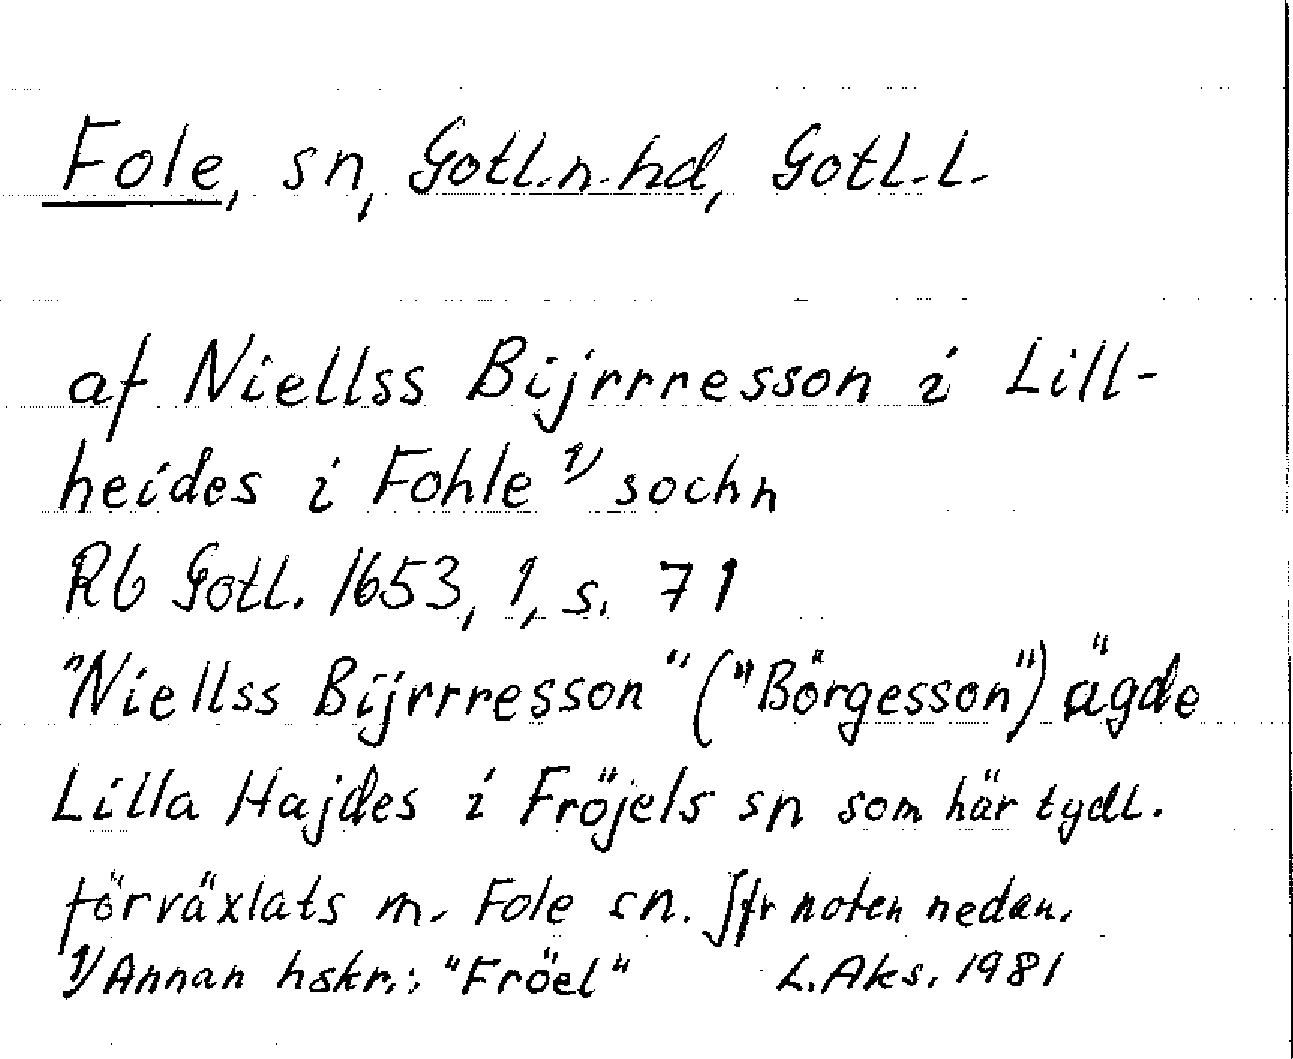 Fole, sn, Gotl.n.hd, Gotl.l.
af Niellss Bijrrresson i Lill-
heides i Fohle 1) sochn
Rb Gotl. 1653, 1, s. 71
"Niellss Bijrrresson" ("Börgesson") ägde
Lilla Hajdes i Fröjels sn som här tydl.
förväxlats m. Fole sn. Jfr noten nedan.
1) Annan hskr.: "Fröel" L. Aks. 1981